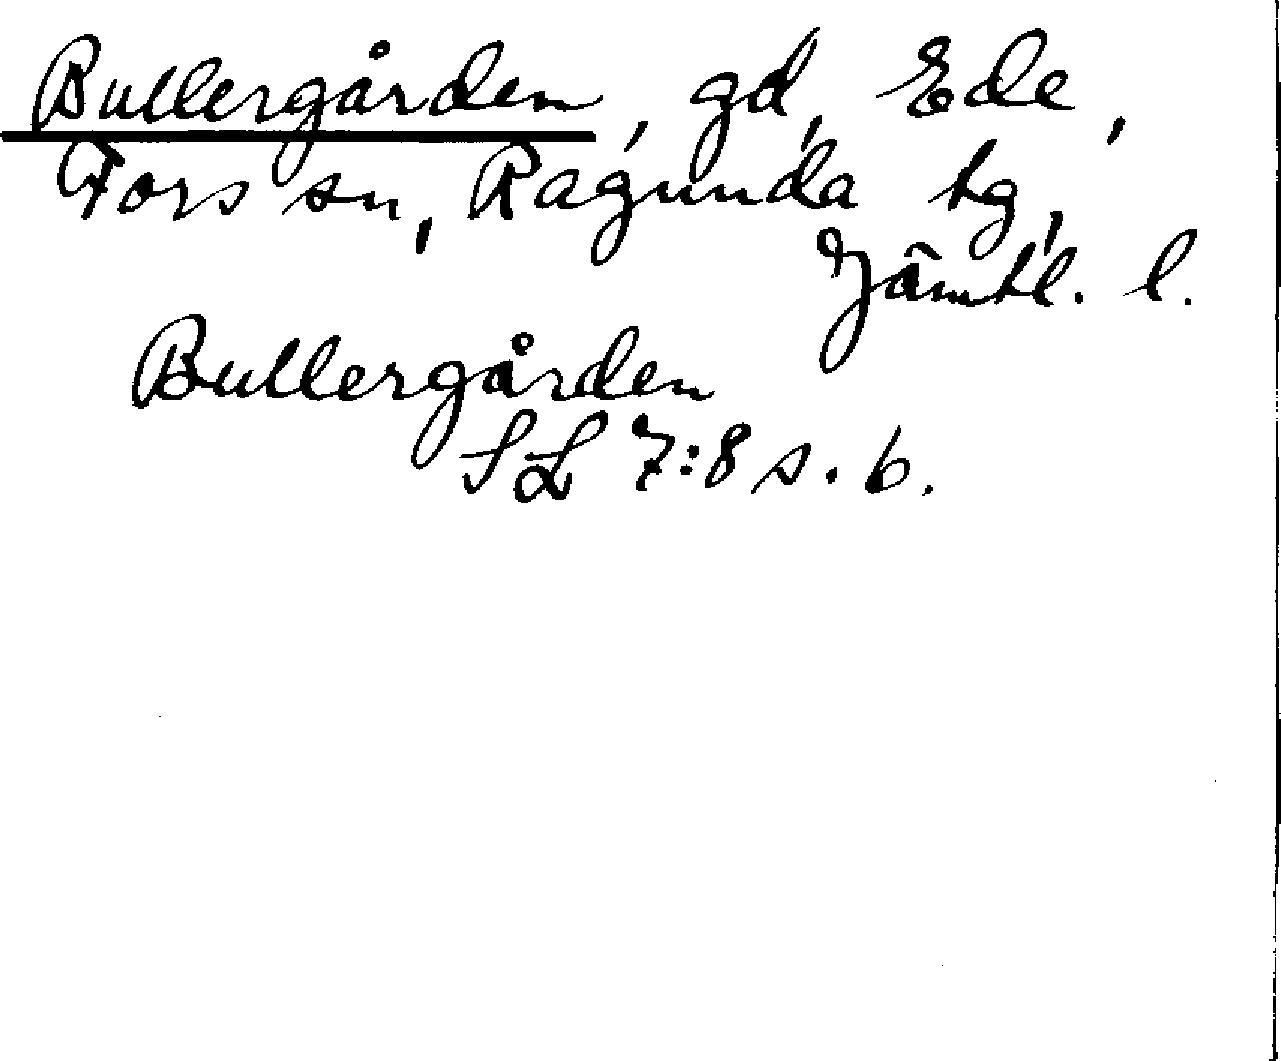 Bullergården, gd, Ede,
Fors sn, Ragunda tg,
Jämtl. l.
Bullergården
SL 7:8 s. 6.